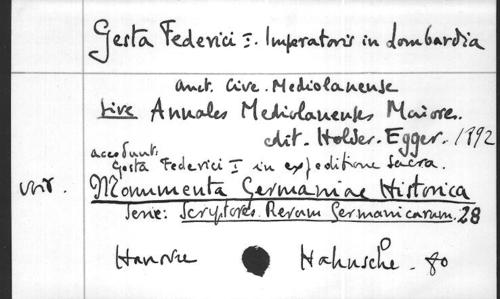 Gesta Federici I. Imperatoris in Lombardia
auct. Cive. Mediolanense
sive Annales Mediolanenses Maiores.
edit. Holder. Egger. 1892
accedunt:
Gesta Federici I in expeditione sacra.
voir. Monumenta Germaniae Historica
Serie: Scriptores. Rerum Germanicarum. 28
Hanovre Hahnsche. 80